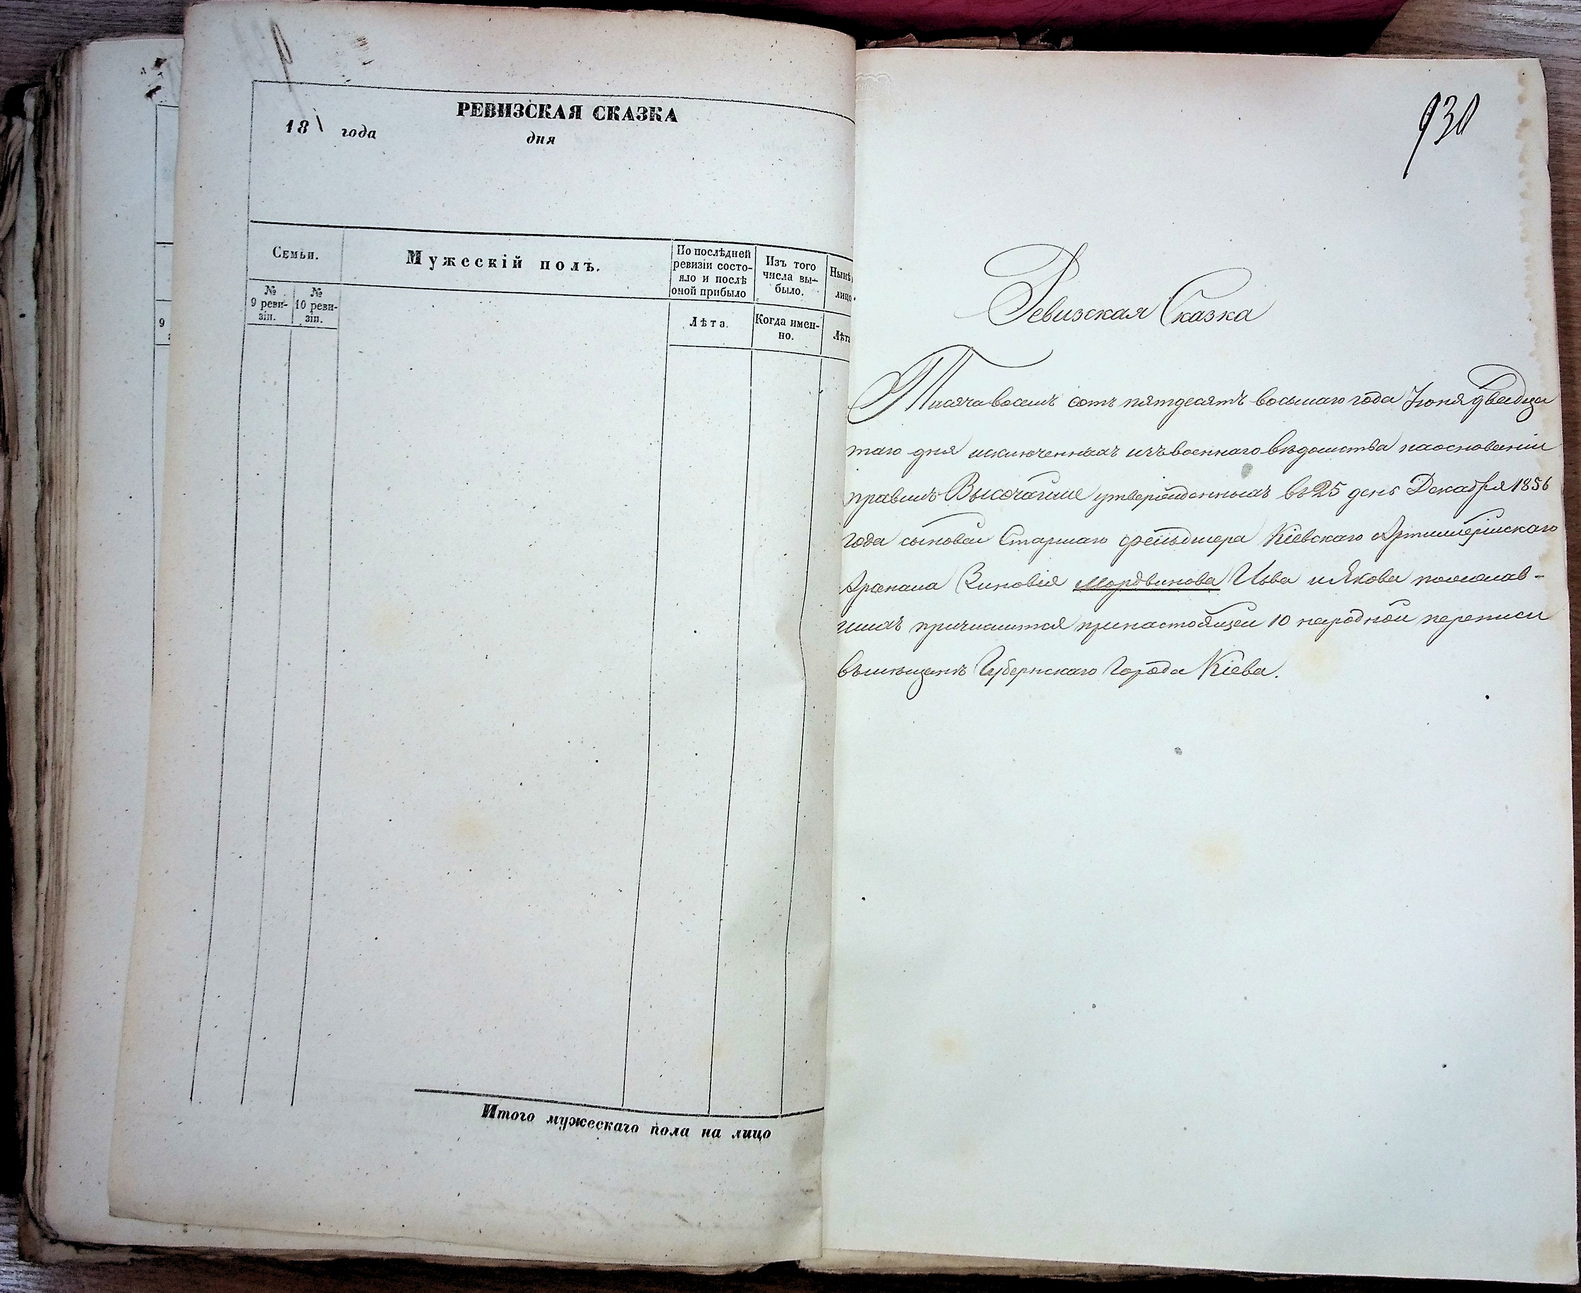 РЕВИЗСКАЯ СКАЗКА
18 года дня
Семьи.
Мужескій полъ.
По послѣдней ревизіи состо-
яло и послѣ
оной прибыло
Изъ того
числа вы-
было.
Нынѣ
лицо
№
9 реви-
зіи.
№
10 реви-
зіи.
Лѣта.
Когда имен-
но.
Лѣта
9
Итого мужескаго пола на лицо
930
Ревизская Сказка
Тысяча восемь сотъ пятдесятъ восьмаго года Іюня двадца
таго дня исключенныхъ изъ военнаго вѣдомства на основаніи
правилъ Высочайше утвержденныхъ въ 25 день Декабря 1856
года сыновей Старшаго фельдшера Кіевскаго Артиллерійскаго
Арсенала Зиновія Мордвинова Льва и Якова пожелав-
шихъ причислится при настоящей 10 народной переписи
въ мѣщане Губернскаго Города Кіева.